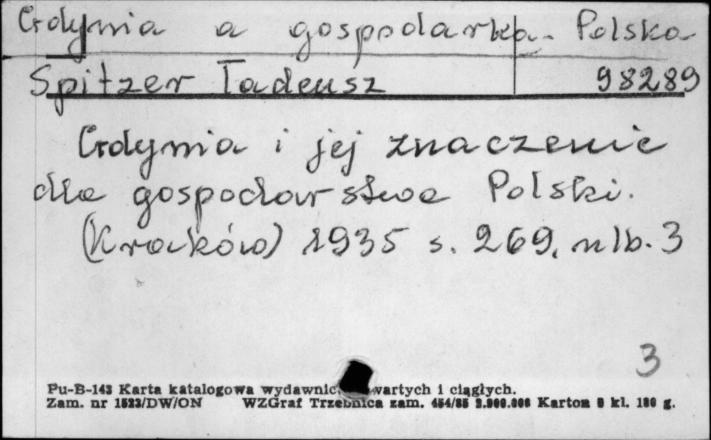 Gdynia a gospodarka - Polska
Spitzer Tadeusz 98289
Gdynia i jej znaczenie
dla gospodarstwa Polski.
(Kraków) 1935 s. 269, nlb. 3
3
Pu-B-143 Karta katalogowa wydawnic wartych i ciągłych.
Zam. nr 1523/DW/ON WZGraf Trzebnica zam. 454/85 2.000.000 Karton kl. 180 g.